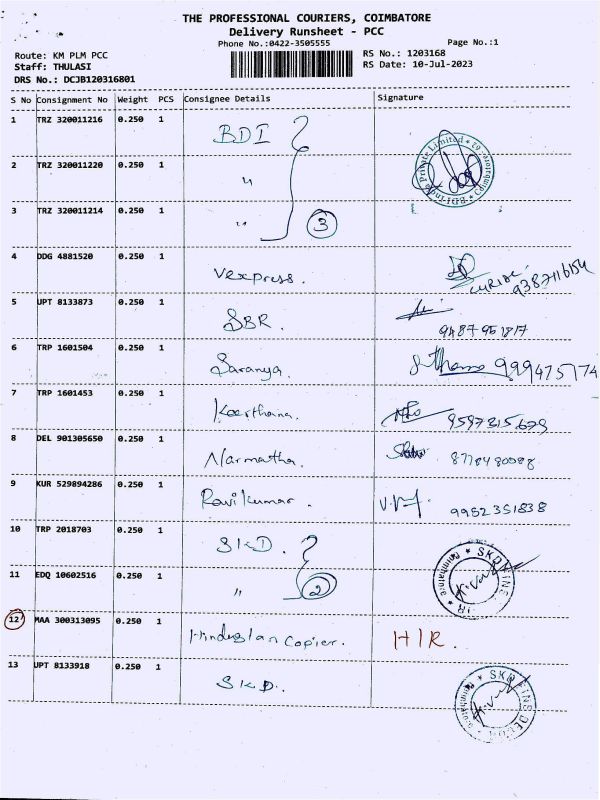 THE PROFESSIONAL COURIERS, COIMBATORE
Delivery Runsheet - PCC
Phone No.:0422-3505555
Page No.:1
Route: KM PLM PCC
RS No.: 1203168
Staff: THULASI
RS Date: 10-Jul-2023
DRS No.: DCJB120316801
S No Consignment No Weight PCS Consignee Details Signature
1 TRZ 320011216 0.250 1 BDI
2 TRZ 320011220 0.250 1 "
3 TRZ 320011214 0.250 1 " 3
4 DDG 4881520 0.250 1 Vexpress. 9387116154
5 UPT 8133873 0.250 1 SBR. 9487951817
6 TRP 1601504 0.250 1 Saranya. 999475774
7 TRP 1601453 0.250 1 Keerthana. 9597315679
8 DEL 901305650 0.250 1 Narmatha.
9 KUR 529894286 0.250 1 Ravikumar. 9952351838
10 TRP 2018703 0.250 1 SKD.
11 EDQ 10602516 0.250 1 " 2
12 MAA 300313095 0.250 1 Hindustan Copier. HIR.
13 UPT 8133918 0.250 1 SKD.